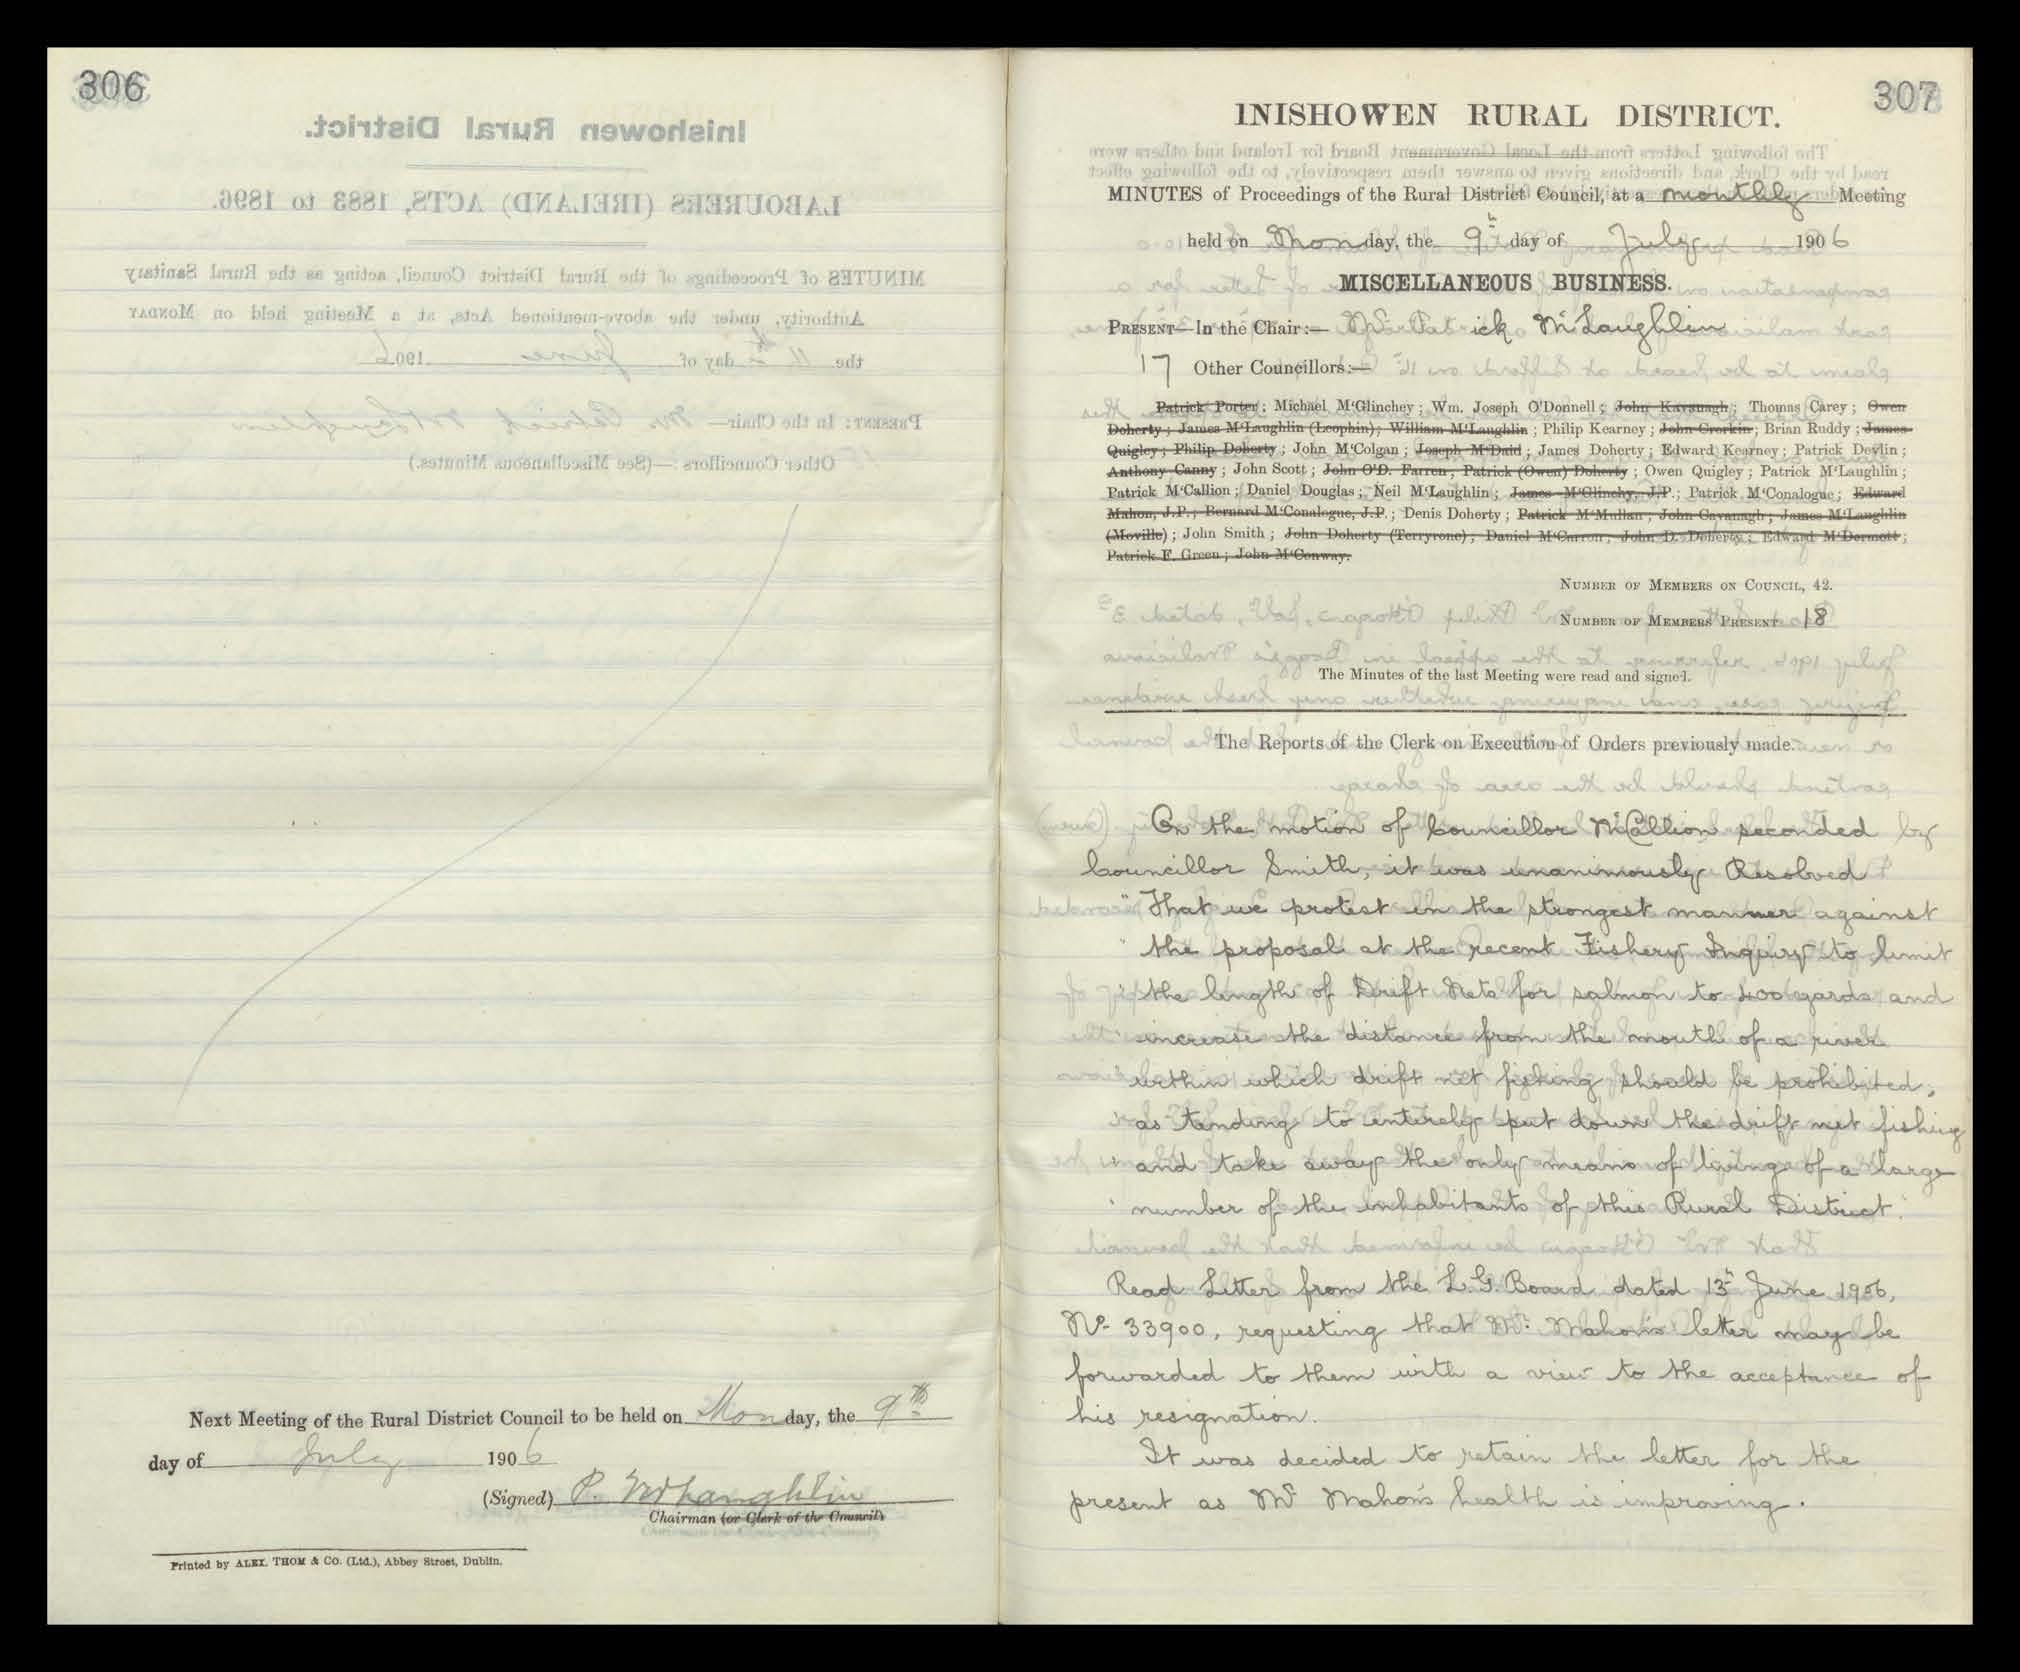 306
Next Meeting of the Rural District Council to be held on Monday, the 9th
day of July 1906
(Signed) P. McLaughlin
Chairman (or Clerk of the Council)
Printed by ALEX. THOM & CO. (Ltd.), Abbey Street, Dublin.
307
INISHOWEN RURAL DISTRICT.
MINUTES of Proceedings of the Rural District Council, at a monthly Meeting
held on Monday, the 9th day of July 1906
MISCELLANEOUS BUSINESS.
PRESENT—In the Chair:— Mr. Patrick McLaughlin
17 Other Councillors:—
Patrick Porter; Michael M'Glinchey; Wm. Joseph O'Donnell; John Kavanagh; Thomas Carey; Owen
Doherty; James M'Laughlin (Leophin); William M'Laughlin; Philip Kearney; John Crorkin; Brian Ruddy; James
Quigley; Philip Doherty; John M'Colgan; Joseph M'Daid; James Doherty; Edward Kearney; Patrick Devlin;
Anthony Canny; John Scott; John O'D. Farren; Patrick (Owen) Doherty; Owen Quigley; Patrick M'Laughlin;
Patrick M'Callion; Daniel Douglas; Neil M'Laughlin; James M'Glinchy, J.P.; Patrick M'Conalogue; Edward
Mahon, J.P.; Bernard M'Conalogue, J.P.; Denis Doherty; Patrick M'Mullan; John Cavanagh; James M'Laughlin
(Moville); John Smith; John Doherty (Terryrone); Daniel M'Carron; John D. Doherty; Edward M'Dermott;
Patrick F. Green; John M'Conway.
NUMBER OF MEMBERS ON COUNCIL, 42.
NUMBER OF MEMBERS PRESENT 18
The Minutes of the last Meeting were read and signed.
The Reports of the Clerk on Execution of Orders previously made.
On the motion of Councillor McCallion seconded by
Councillor Smith, it was unanimously Resolved
"That we protest in the strongest manner against
" the proposal at the recent Fishery Inquiry to limit
" the length of Drift Nets for salmon to 400 yards and
" increase the distance from the mouth of a river
" within which drift net fishing should be prohibited,
" as tending to entirely put down the drift net fishing
" and take away the only means of living of a large
" number of the inhabitants of this Rural District."
Read Letter from the L.G. Board dated 13th June 1906,
No. 33900, requesting that Mr. Mahon's letter may be
forwarded to them with a view to the acceptance of
his resignation.
It was decided to retain the letter for the
present as Mr. Mahon's health is improving.